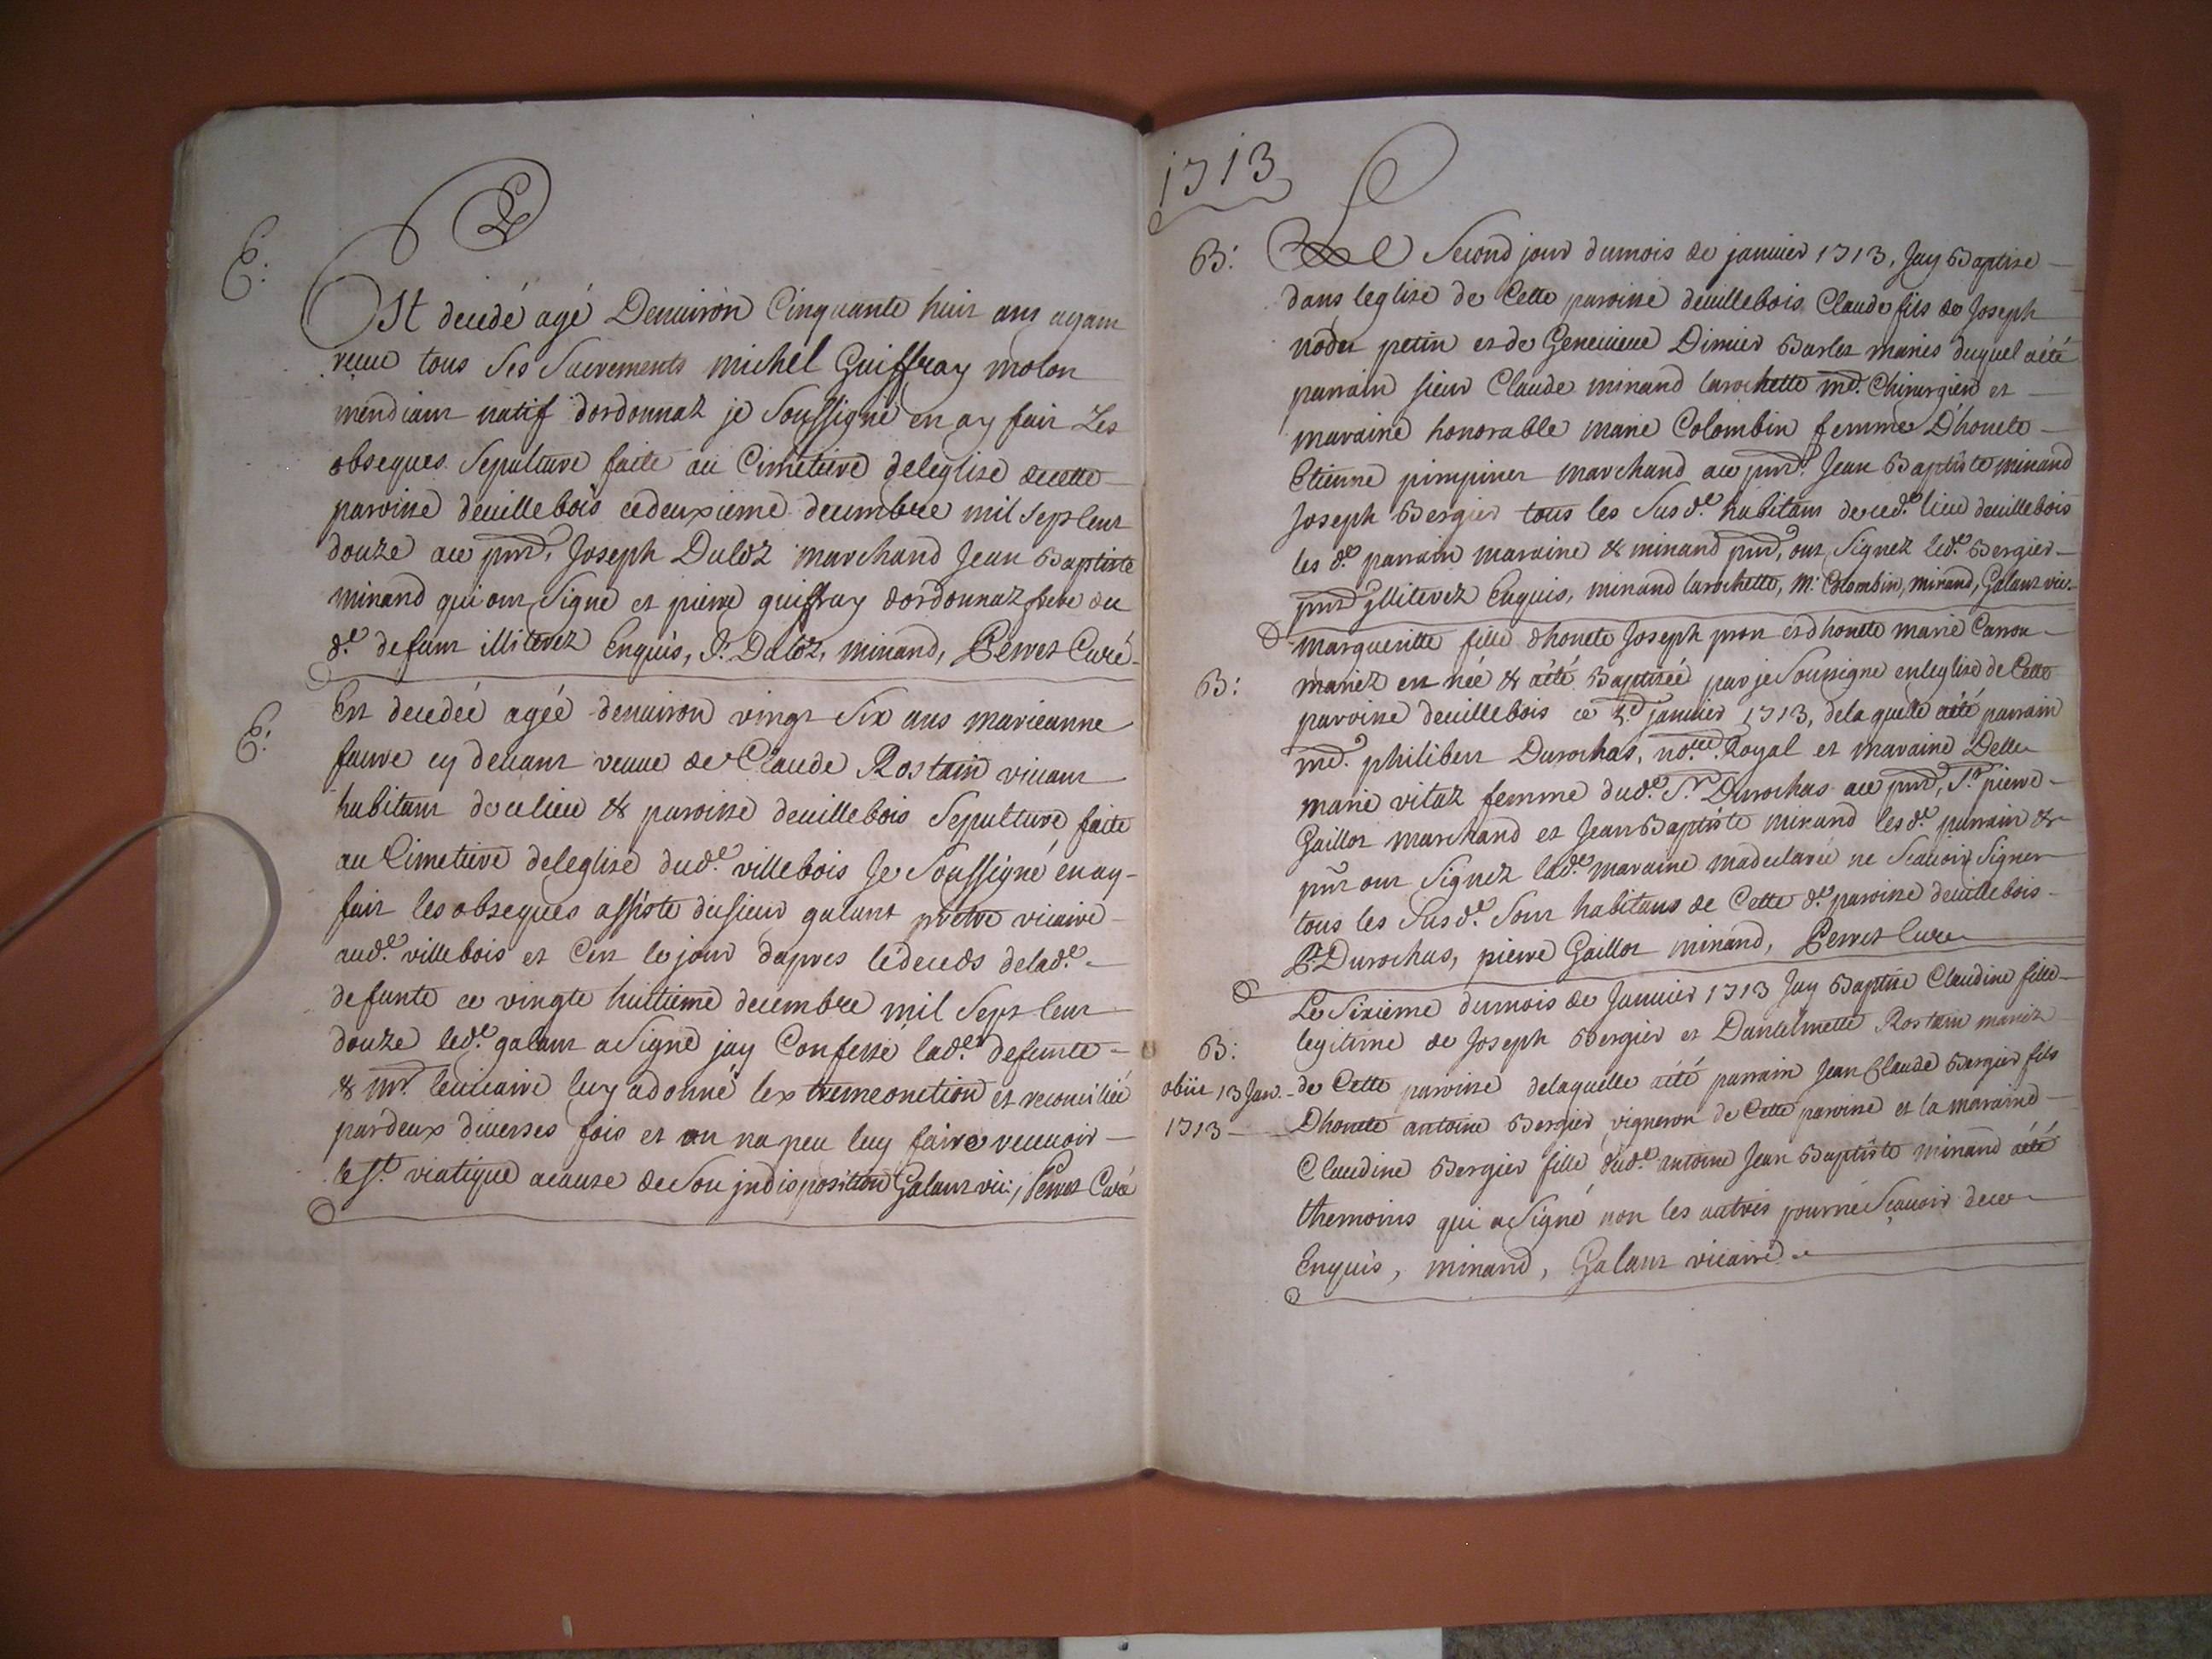 E:
Est decedé agé Denuirón Cinquante huit ans ayant
receu tous Ses Sacrements michel Guiffray molon
mendiant natif dordonnaz je Soussigné en ay fait Les
obseques Sepulture faite au Cimetiere deleglise decette
paroisse deuillebois cedeuxieme decembre mil Sept Cent
douze ace pnts. Joseph Daloz marchand Jean Baptiste
minand qui ont Signe et pierre guiffray dordonnaz frere du
de. defunt illiterez Enquis, J. Daloz, minand, Perret Curé
E:
Est decedée agée denuiron vingt Six ans marieanne
faure cy deuant veuue de Claude Rostain viuant
habitant decelieu & paroisse deuillebois Sepulture faite
au Cimetiere deleglise dude. villebois Je Soussigné enay
fait les obseques assiste dusieur galant prêtre vicaire
aude. villebois et Cest le jour d'apres ledeceds delade.
defunte ce vingte huitieme decembre mil Sept Cent
douze lede. galant aSigné jay Confessé lade. defunte
& mr. leuicaire luy adonné lextremeonction et reconciliée
pardeux diuerses fois et on na peu luy faire receuoir
le St. viatique acause deSon jndisposition Galant vic:, Perret Curé
1713
B:
Le Second jour dumois de januier 1713, Jay Baptise
dans leglise de Cette paroisse deuillebois Claude fils de Joseph
nodet petin et de Geneuieue Dimier Barlet maries duquel aété
parrain sieur Claude minand larochette md. Chirurgien et
maraine honorable marie Colombin femme D'honete
Etienne pimpinet marchand ace pnts. Jean Baptiste minand
Joseph Bergier tous les Susde. habitans decede. lieu deuillebois
les de. parrain maraine & minand pnts, ont Signez lede. Bergier
pnts jlliterez Enquis, minand larochette, M: Colombin, minand, Galant vic:
B:
Margueritte fille dhonete Joseph pron et dhonete marie Carron
mariez est née & aété Baptisée par je Soussigne enleglise de Cette
paroisse deuillebois ce 5e januier 1713, dela quelle aété parrain
md. philibert Durochas, nore. Royal et maraine Delle
marie vitaz femme dude. Sr. Durochas ace pnts, Sr. pierre
Gaillot marchand et Jean Baptiste minand lesde. parrain &
pnts ont Signez lade. maraine madeclarée ne Scauoir Signer
tous les Susde. Sont habitans de Cette de. paroisse deuillebois
P. Durochas, pierre Gaillot minand, Perret Cure
B:
Le Sixieme dumois de Januier 1713 Jay Baptise Claudine fille
legitime de Joseph Bergier et Dantelmette Rostain mariez
obiit 13 Janv.
1713
de Cette paroisse delaquelle aété parrain Jean Claude Bergier fils
Dhonete antoine Bergier vigneron de Cette paroisse et la maraine
Claudine Bergier fille dude. antoine Jean Baptiste minand aété
themoins qui aSigné non les autres pourne Scauoir dece
Enquis, minand, Galant vicaire